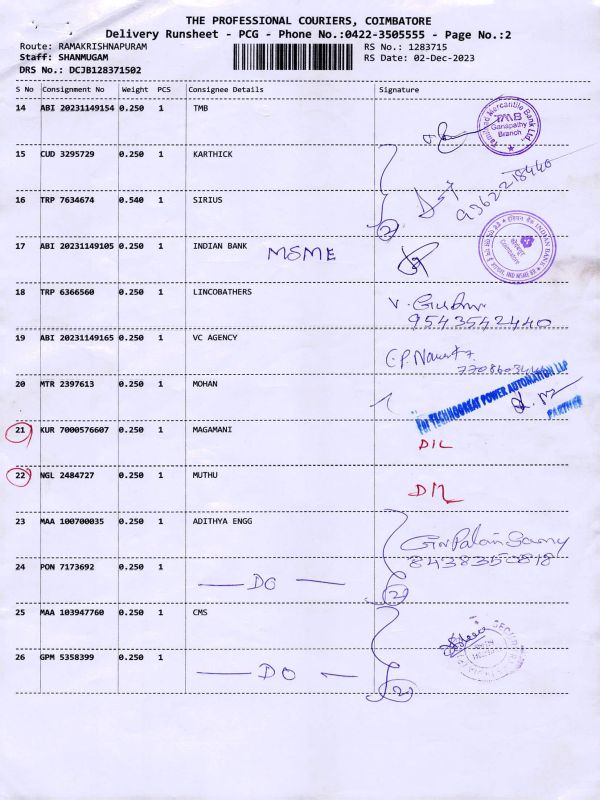 THE PROFESSIONAL COURIERS, COIMBATORE
Delivery Runsheet - PCG - Phone No.:0422-3505555 - Page No.:2
Route: RAMAKRISHNAPURAM RS No.: 1283715
Staff: SHANMUGAM RS Date: 02-Dec-2023
DRS No.: DCJB128371502
S No Consignment No Weight PCS Consignee Details Signature
14 ABI 20231149154 0.250 1 TMB
Tamilnad Mercantile Bank Ltd.,
TMB
Ganapathy
Branch
15 CUD 3295729 0.250 1 KARTHICK
16 TRP 7634674 0.540 1 SIRIUS
9362218440
2
17 ABI 20231149105 0.250 1 INDIAN BANK MSME
INDIAN BANK
Coimbatore
18 TRP 6366560 0.250 1 LINCOBATHERS
9543542440
19 ABI 20231149165 0.250 1 VC AGENCY
20 MTR 2397613 0.250 1 MOHAN
For TECHNOGREAT POWER AUTOMATION LLP
PARTNER
21 KUR 7000576607 0.250 1 MAGAMANI
22 NGL 2484727 0.250 1 MUTHU
23 MAA 100700035 0.250 1 ADITHYA ENGG
8438350818
24 PON 7173692 0.250 1 — DO — 2
25 MAA 103947760 0.250 1 CMS
26 GPM 5358399 0.250 1 — DO — 2